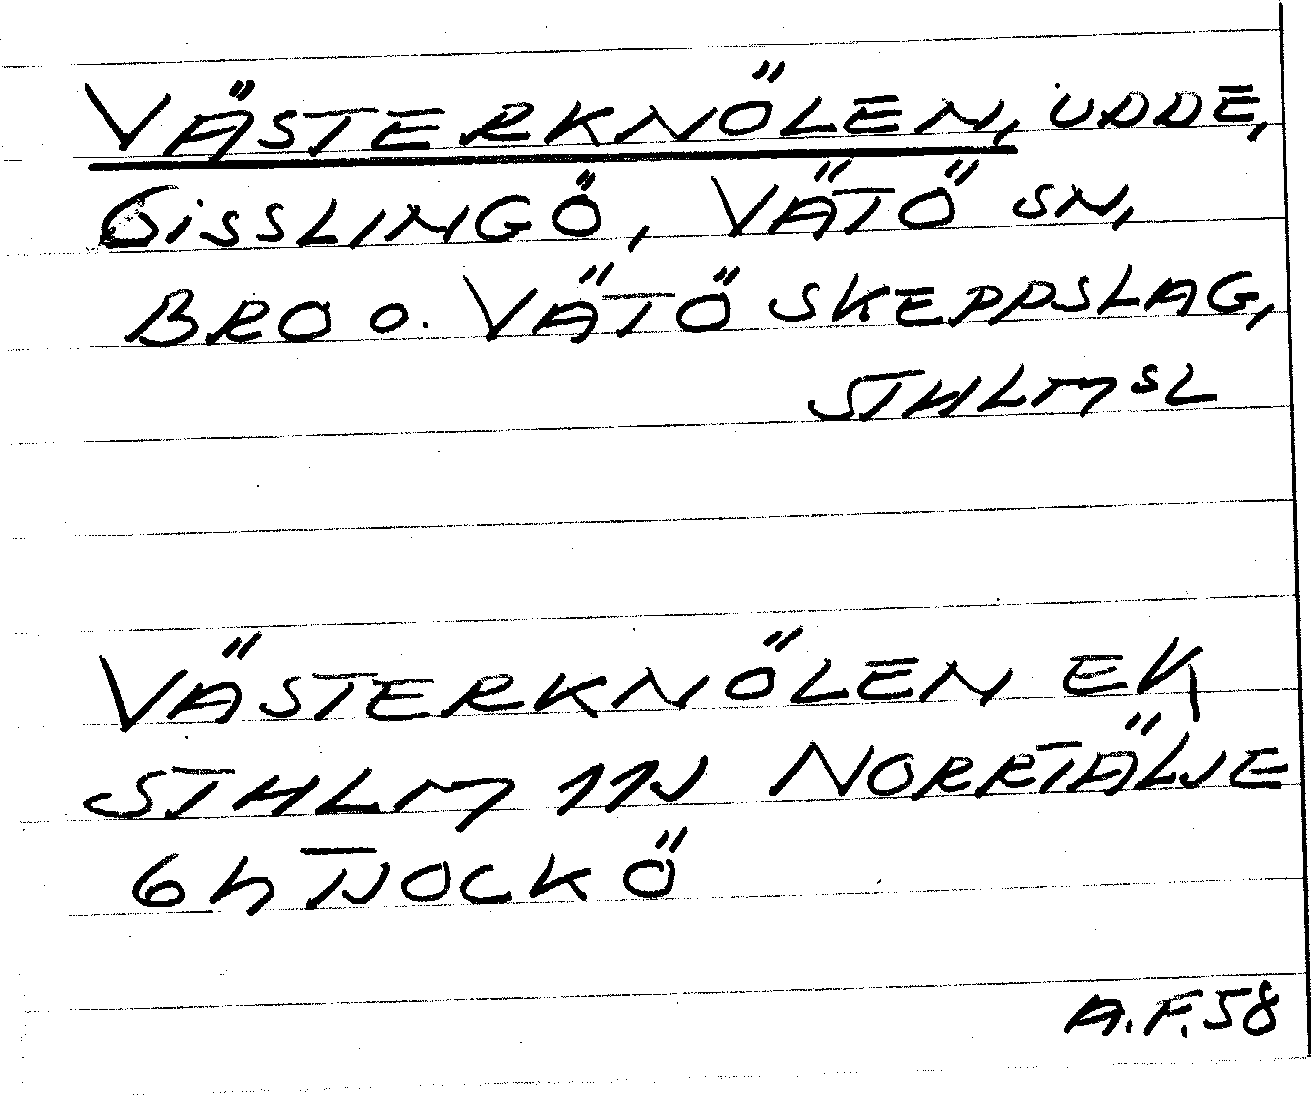 VÄSTERKNÖLEN, UDDE,
GISSLINGÖ, VÄTÖ SN,
BRO O. VÄTÖ SKEPPSLAG,
STHLMSL
VÄSTERKNÖLEN EK
STHLM 11J NORRTÄLJE
6h TJOCKÖ
A.F. 58